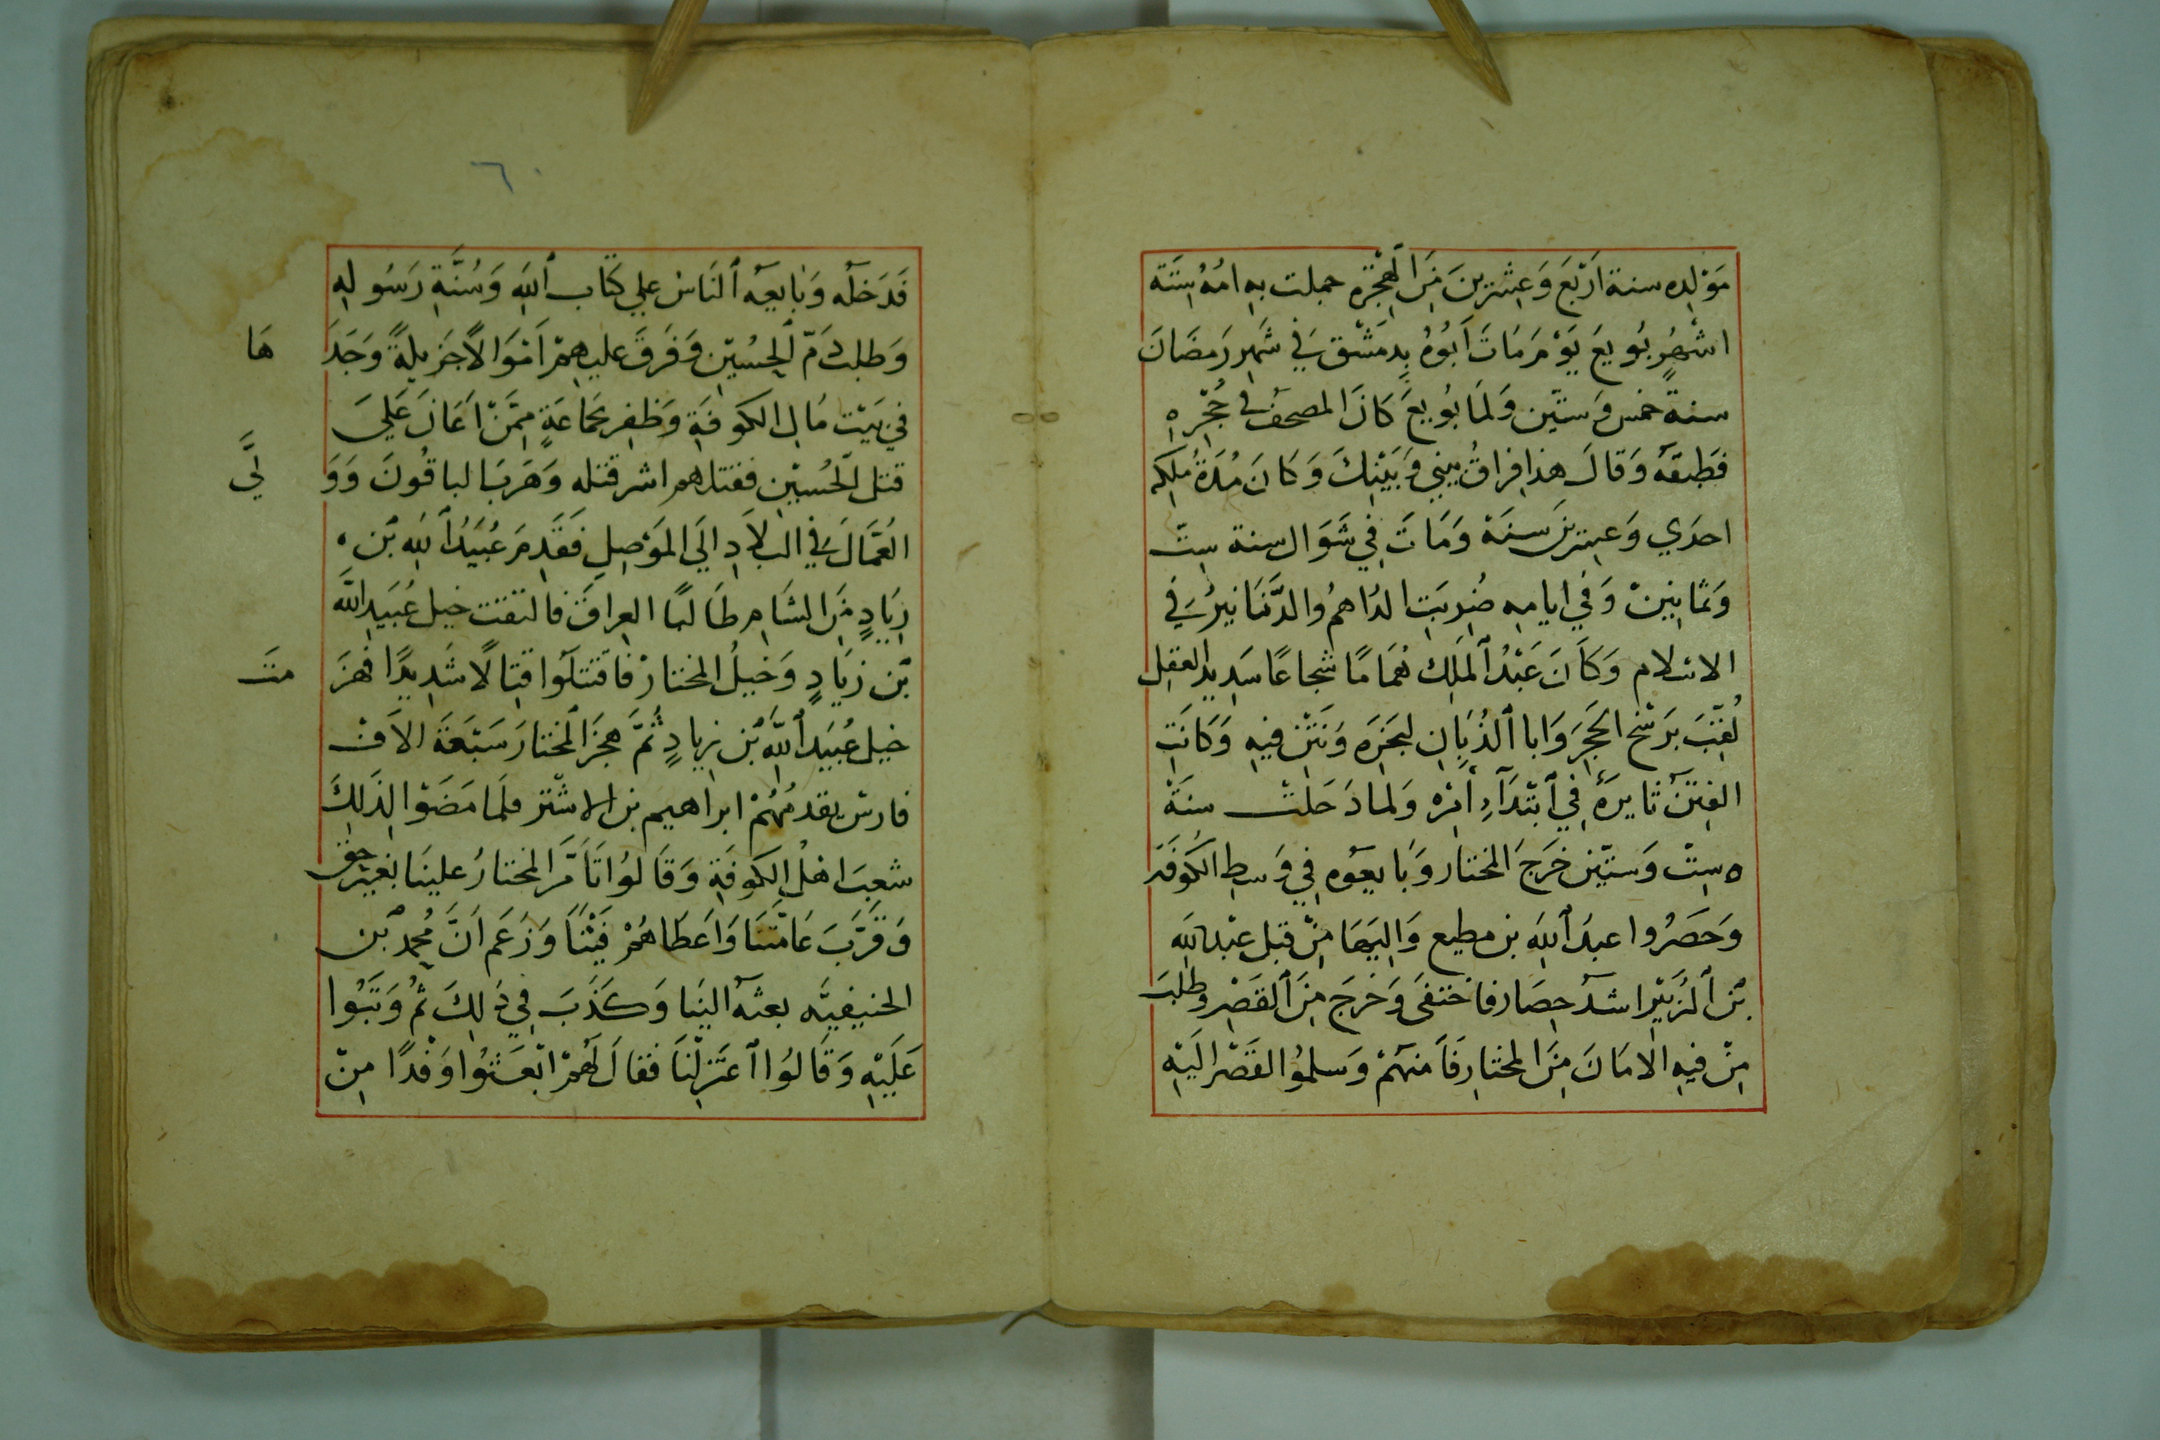 مَوْلِده سنة اَرْبَعَ وَعِشْرِينَ مِنَ الْهِجْرَه حملت به امُهُ سِتَة
اشْهُرٍ بُويعَ يَوْمَ مَاتَ اَبُوهُ بِدِمَشْق في شَهِر رَمضَانَ
سنة خمس وَستين وَلمَا بُويعَ كَانَ المصحف في حُجْرِه
فطبقهُ وَقالَ هذا فِراقُ بيني وَبَيْنِكَ وَكَانَ مُدَةُ مُلِكِه
احدَي وَعِشرِينَ سنَة وَمَاتَ فِي شَوَال سنة سِت
وَثمَانِينْ وَفي ايامِه ضُرِبَتِ الدَاهمُ والدَّنَانيرُ في
الاسْلام وَكاَنَ عَبْدُ ٱلمَلِك هُمَامًا شجاعًا سَدِيد العقِل
لُقِّبَ بَرَشْحِ الحَجَرِ وَابا ٱلذُبَانِ لبَخَرَه وَنَتْنٍ فيهِ وَكَانَتِ
الفِتَنُ ثَايرةً فِي ٱبتْدَآءِ اَمْرِه وَلمادَخَلتْ سنَةْ
سِتْ وَستِّين خَرَجَ المختار وَبَايعَوه فِي وَسطِ الكُوفَة
وَحَصَرُوا عبدَ ٱللَّه بن مطيع وَاليهَا مِنْ قبَل عبْد اللَّه
بْن ٱلزُبَيْر اشدَ حِصَار فاختفَى وَخرَجَ مِنَ ٱلقَصْرِ وطلبَ
مِنْ فيهِ الامَانَ مِنَ المختارِ فَاَمنهَمْ وَسلموُا القَصْر الَيْهِ
٦٠
فَدَخلَه وَبَايعهُ ٱلنَاسُ علي كتَاب ٱللَّهِ وَسُنَّةِ رَسُولِهِ
وَطلبَ دَمّ ٱلحِسُيْنِ وَفَرَقَ عليهِمْ اَمْوَالاً جَزيلةً وَجَدَ هَا
في بَيْت مَالِ الكوفَةِ وَظفِر بجَماعَةٍ مِمَّنْ اَعَانَ عَلي
قتل ٱلحُسيْنِ فقتلهم اشر قتله وَهَربَ الباقُونَ وَوَ لَّي
العُمَّالَ في البلاَدِ اليَ المَوْصِلِ فَقَدِمَ عُبَيَدُ ٱللهِ بْن
زِيَادٍ مِنَ الشَامِ طَالبًا العِراقَ فالتقت خيل عُبَيَد ٱللَّه
بّن زيَادٍ وَخيلُ المختارْ فاقتتلَوا قتِالًا شَدِيدًا فهَزَ مَت
خيل عُبَيَد ٱللَّه بْن زيادٍ ثُمَّ جهزَ ٱلمختارَ سَبْعَةَ الاَف
فارسْ يقدمُهُمْ ابراهيم بن الاشْتر فلمَا مَضَوْا لِذَلِكَ
شعِبَ اهْل الكوفَةِ وَقَالُوا تَاَمَّرَ المختارُ علينَا بغيْر حق
وَقَرَّبَ عَامَّتَنَا وَاَعطَاهُمْ فَيْئَنَا وَزعَم اَنَّ مُحمد بْن
الحنيفيَّه بعثهُ الينَا وَكذَّبَ فِي ذَلِكَ ثمُ وَثبَوُا
عَلَيْهِ وَقَالُوا ٱعتَزِلْنَا فقالَ لهَمُ ابْعَثوُا وَفْدًا مِنْ